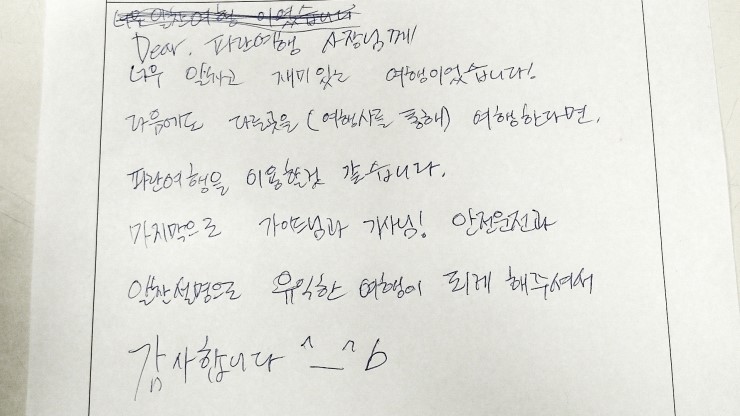 너무 알찬여행 이였습니다
Dear. 파란여행 사장님께
너무 알차고 재미있는 여행이었습니다!
다음에도 다른곳을 (여행사를 통해) 여행한다면,
파란여행을 이용할것 같습니다.
마지막으로 가이드님과 기사님! 안전운전과
알찬설명으로 유익한 여행이 되게 해주셔서
감사합니다 ^_^b